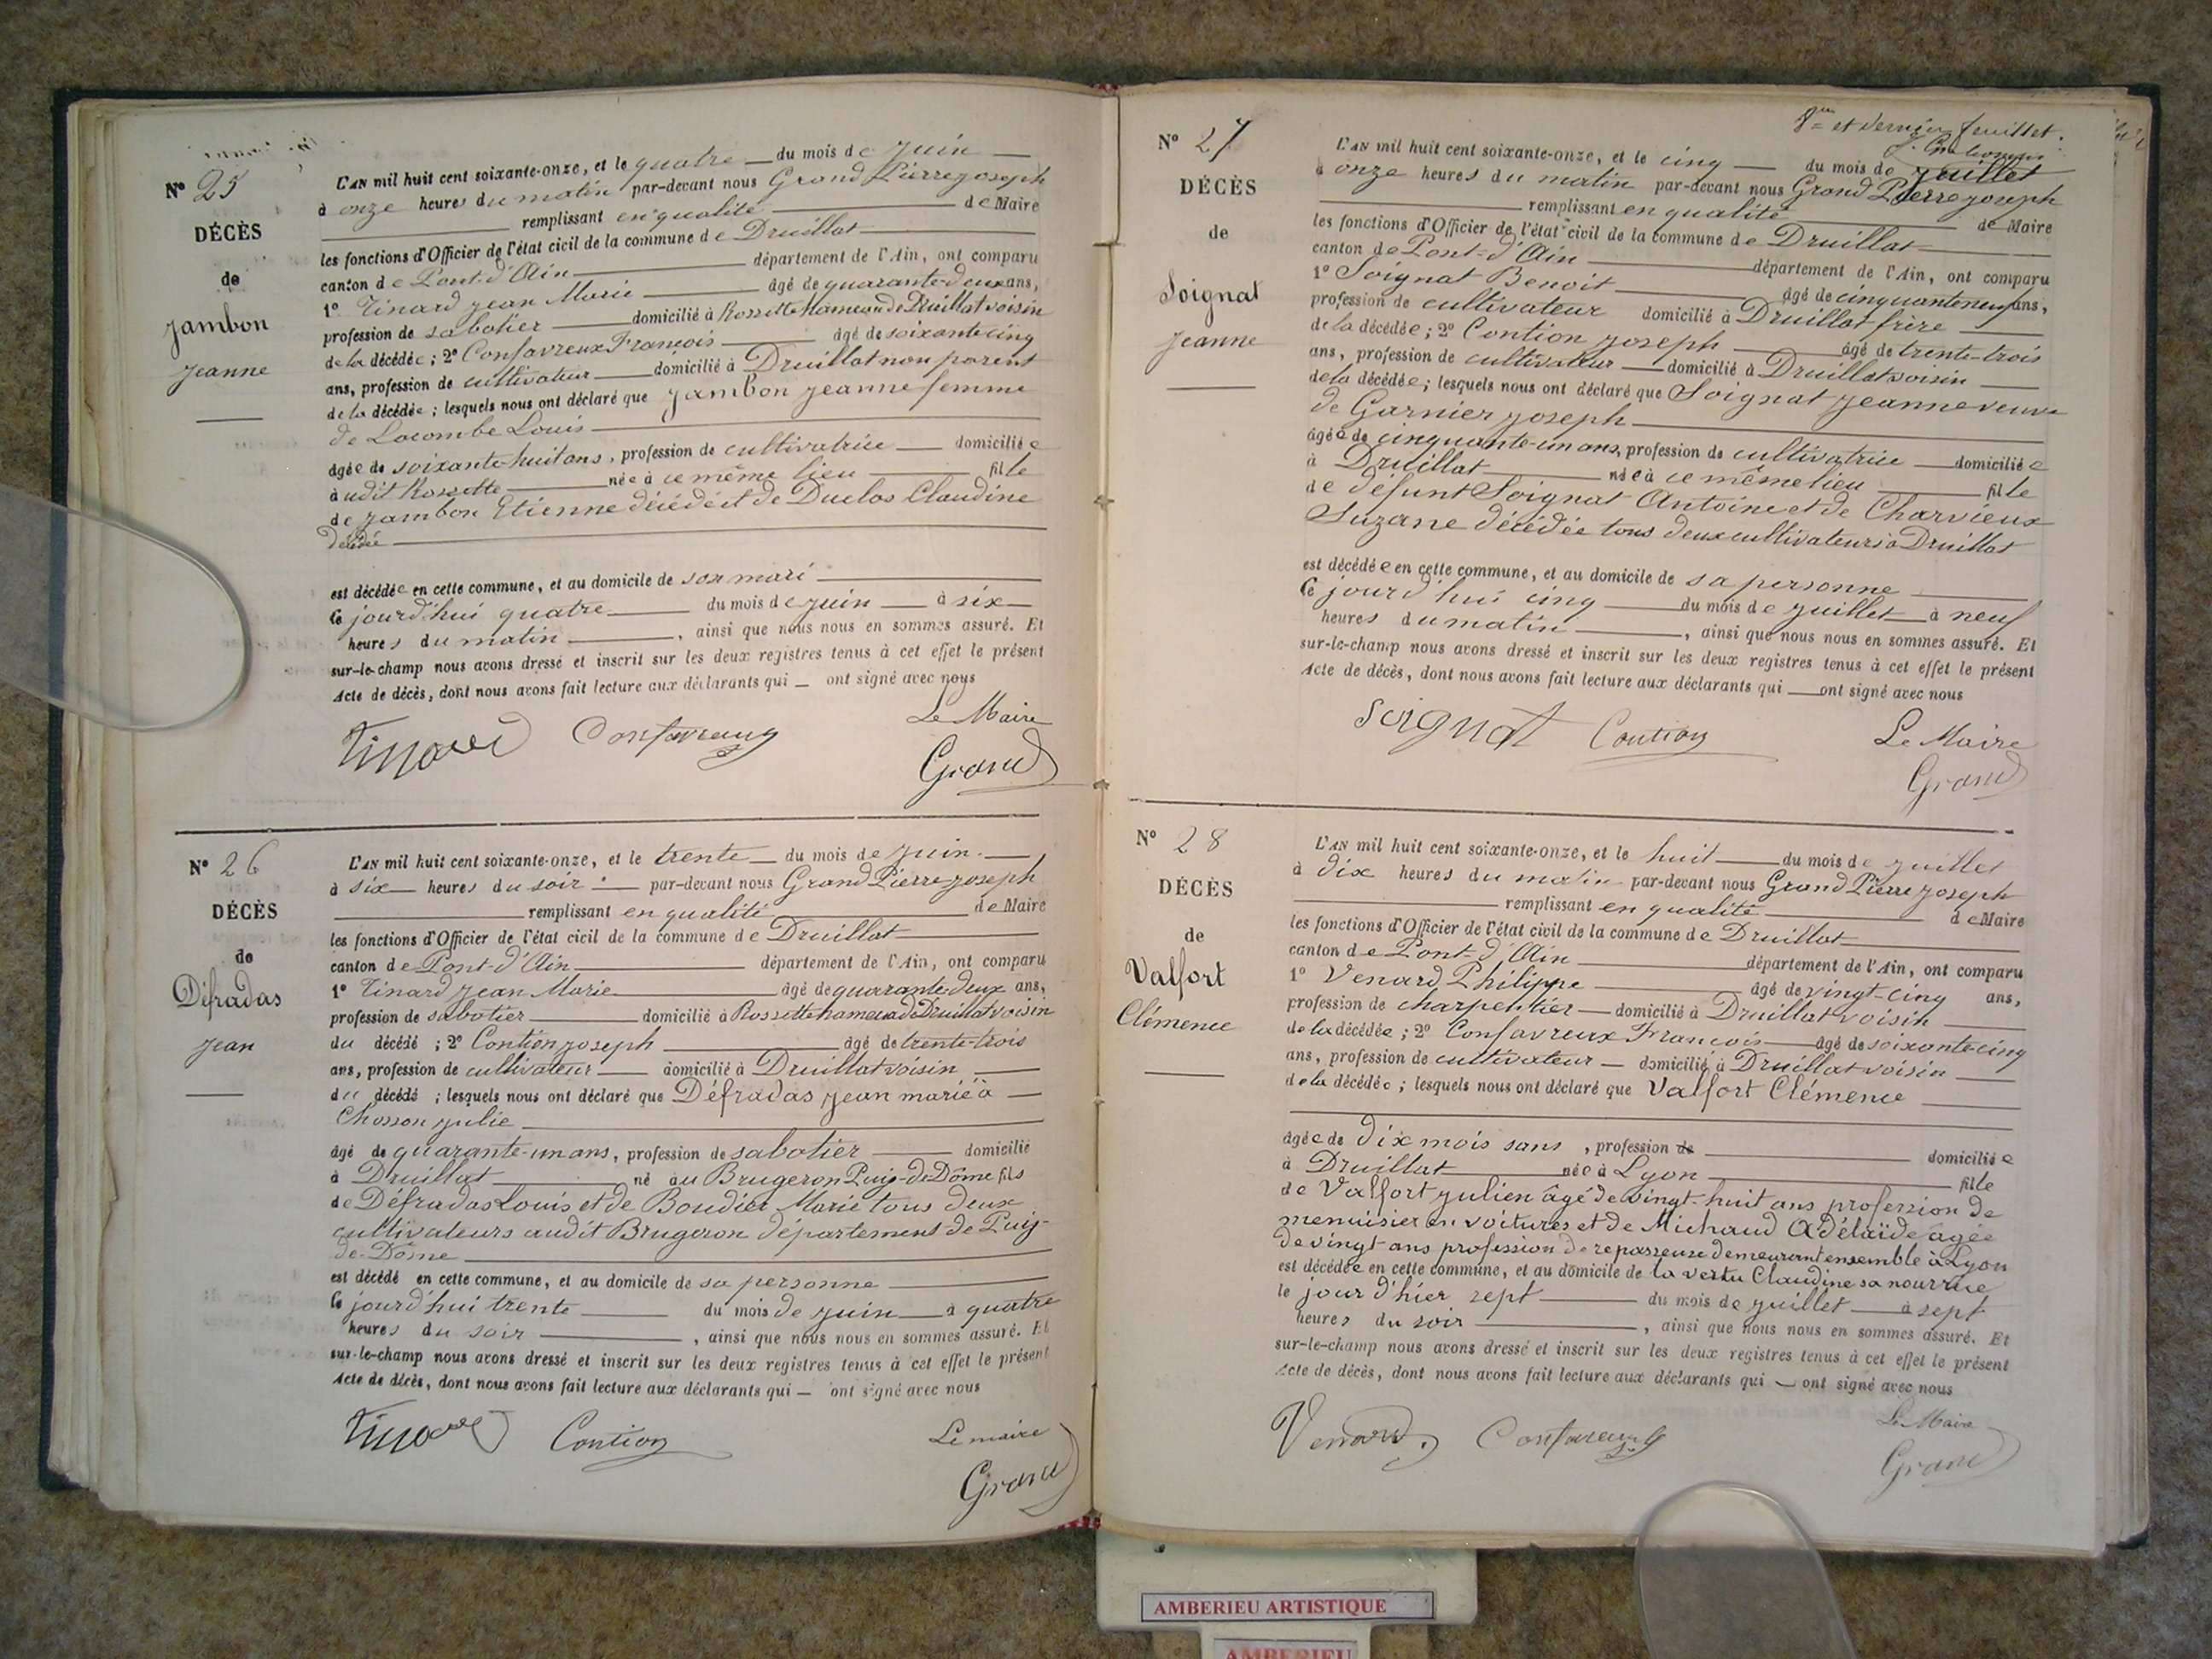 Nº 25
DÉCÈS
de
Jambon
Jeanne
L'AN mil huit cent soixante-onze, et le quatre du mois de Juin
à onze heures du matin par-devant nous Grand Pierre Joseph
remplissant en qualité de Maire
les fonctions d'Officier de l'état civil de la commune de Druillat
canton de Pont-d'Ain département de l'Ain, ont comparu
1º Tinard Jean Marie âgé de quarante-deux ans,
profession de sabotier domicilié à Rossette Hameau de Druillat voisin
de la décédée ; 2º Confavreux François âgé de soixante cinq
ans, profession de cultivateur domicilié à Druillat non parent
de la décédée ; lesquels nous ont déclaré que Jambon Jeanne femme
de Lacombe Louis
âgée de soixante-huit ans, profession de cultivatrice domiciliée
à udit Rossette née à ce même lieu fille
de Jambon Etienne décédé et de Duclos Claudine
décédée
est décédée en cette commune, et au domicile de son mari
le jourd'hui quatre du mois de Juin à six
heures du matin , ainsi que nous nous en sommes assuré. Et
sur-le-champ nous avons dressé et inscrit sur les deux registres tenus à cet effet le présent
Acte de décès, dont nous avons fait lecture aux déclarants qui ont signé avec nous
Tinard Confavreux Le Maire
Grand
Nº 26
DÉCÈS
de
Défradas
Jean
L'AN mil huit cent soixante-onze, et le trente du mois de Juin
à six heures du soir par-devant nous Grand Pierre Joseph
remplissant en qualité de Maire
les fonctions d'Officier de l'état civil de la commune de Druillat
canton de Pont-d'Ain département de l'Ain, ont comparu
1º Tinard Jean Marie âgé de quarante-deux ans,
profession de sabotier domicilié à Rossette hameau de Druillat voisin
du décédé ; 2º Contion Joseph âgé de trente-trois
ans, profession de cultivateur domicilié à Druillat voisin
du décédé ; lesquels nous ont déclaré que Défradas Jean marié à
Chosson Julie
âgé de quarante-un ans, profession de sabotier domicilié
à Druillat né au Brugeron Puy-de-Dôme fils
de Défradas Louis et de Boudier Marie tous deux
cultivateurs audit Brugeron département de Puy-
de-Dôme
est décédé en cette commune, et au domicile de sa personne
le jourd'hui trente du mois de Juin à quatre
heures du soir , ainsi que nous nous en sommes assuré. Et
sur-le-champ nous avons dressé et inscrit sur les deux registres tenus à cet effet le présent
Acte de décès, dont nous avons fait lecture aux déclarants qui ont signé avec nous
Tinard Contion Le maire
Grand
et dernier feuillet.
Nº 27
DÉCÈS
de
Soignat
Jeanne
L'AN mil huit cent soixante-onze, et le cinq du mois de Juillet
à onze heures du matin par-devant nous Grand Pierre Joseph
remplissant en qualité de Maire
les fonctions d'Officier de l'état civil de la commune de Druillat
canton de Pont-d'Ain département de l'Ain, ont comparu
1º Soignat Benoit âgé de cinquante neuf ans,
profession de cultivateur domicilié à Druillat frère
de la décédée ; 2º Contion Joseph âgé de trente-trois
ans, profession de cultivateur domicilié à Druillat voisin
de la décédée ; lesquels nous ont déclaré que Soignat Jeanne veuve
de Garnier Joseph
âgée de cinquante-un ans, profession de cultivatrice domiciliée
à Druillat née à ce même lieu fille
de défunt Soignat Antoine et de Charvieux
Suzane décédée tous deux cultivateurs à Druillat
est décédée en cette commune, et au domicile de sa personne
le jourd'hui cinq du mois de Juillet à neuf
heures du matin , ainsi que nous nous en sommes assuré. Et
sur-le-champ nous avons dressé et inscrit sur les deux registres tenus à cet effet le présent
Acte de décès, dont nous avons fait lecture aux déclarants qui ont signé avec nous
Soignat Contion Le Maire
Grand
Nº 28
DÉCÈS
de
Valfort
Clémence
L'AN mil huit cent soixante-onze, et le huit du mois de Juillet
à dix heures du matin par-devant nous Grand Pierre Joseph
remplissant en qualité de Maire
les fonctions d'Officier de l'état civil de la commune de Druillat
canton de Pont-d'Ain département de l'Ain, ont comparu
1º Venard Philippe âgé de vingt-cinq ans,
profession de charpentier domicilié à Druillat voisin
de la décédée ; 2º Confavreux François âgé de soixante-cinq
ans, profession de cultivateur domicilié à Druillat voisin
de la décédée ; lesquels nous ont déclaré que Valfort Clémence
âgée de dix mois sans , profession de domiciliée
à Druillat née à Lyon fille
de Valfort Julien âgé de vingt-huit ans profession de
menuisier en voitures et de Michaud Adélaïde âgée
de vingt ans profession de repasseuse demeurant ensemble à Lyon
est décédée en cette commune, et au domicile de la vertu Claudine sa nourrice
le jour d'hier sept du mois de Juillet à sept
heures du soir , ainsi que nous nous en sommes assuré. Et
sur-le-champ nous avons dressé et inscrit sur les deux registres tenus à cet effet le présent
Acte de décès, dont nous avons fait lecture aux déclarants qui ont signé avec nous
Venard Confavreux Le Maire
Grand
AMBERIEU ARTISTIQUE
AMBERIEU